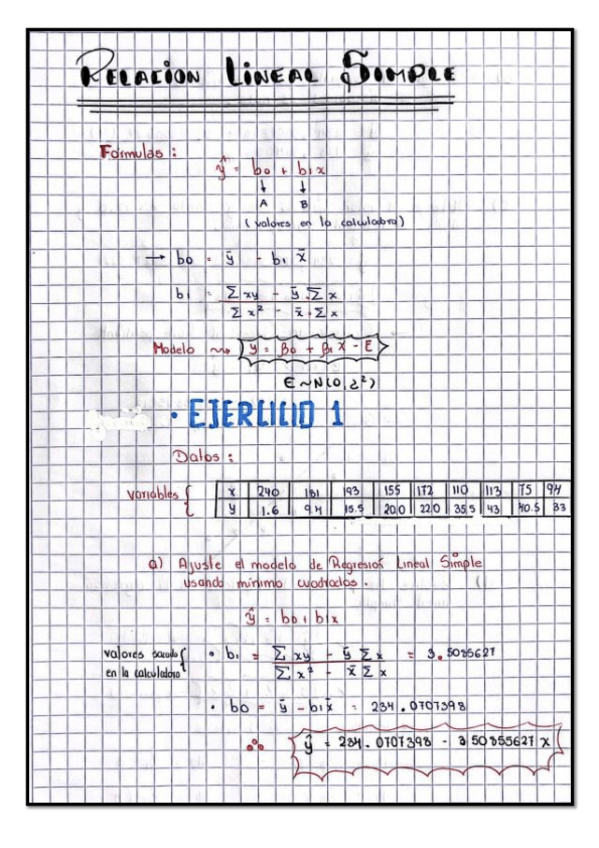 RELACION LINEAL SIMPLE
Formulas :
ŷ = b0 + b1x
↓ ↓
A B
( valores en la calculadora )
→ b0 = ȳ - b1 x̄
b1 = Σxy - ȳ.Σx
Σx² - x̄.Σx
Modelo y = β0 + β1 X - E
E ~ N(0,2²)
• EJERCICIO 1
Datos :
variables { x 240 181 193 155 172 110 113 75 94
y 1.6 9.4 15.5 20.0 22.0 35.5 43 40.5 33
a) Ajuste el modelo de Regresión Lineal Simple
usando minimo cuadrados .
ŷ = b0 + b1x
valores sacado {
en la calculadora
• b1 = Σxy - ȳ Σx = 3.5085627
Σx² - x̄ Σx
• b0 = ȳ - b1x̄ = 234.0707398
∴ ŷ = 234.0707398 - 3 50855627 x